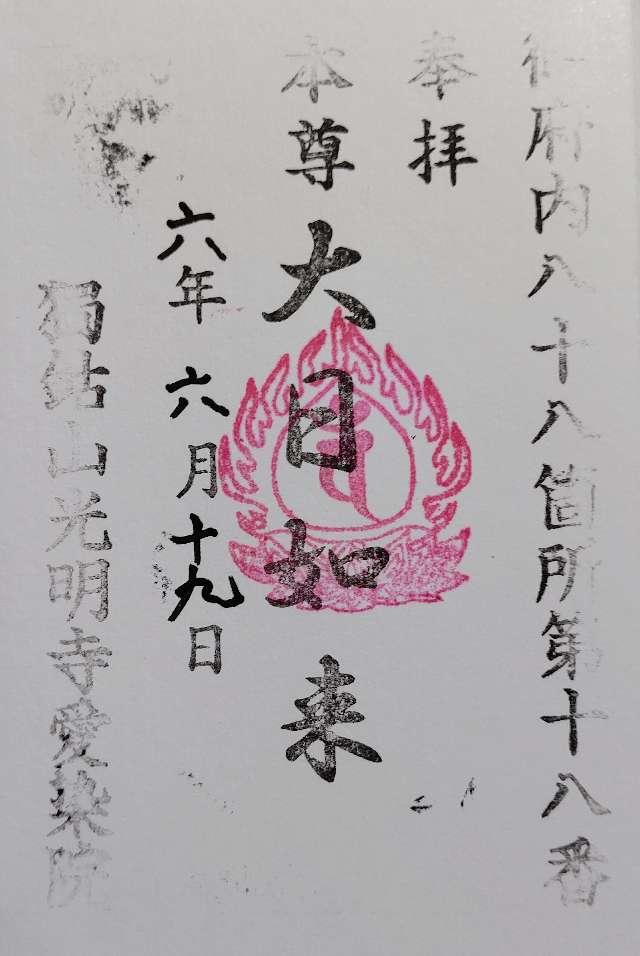 御府内八十八箇所第十八番
奉拝
本尊
大日如来
六年 六月十九日
獨鈷山光明寺愛染院